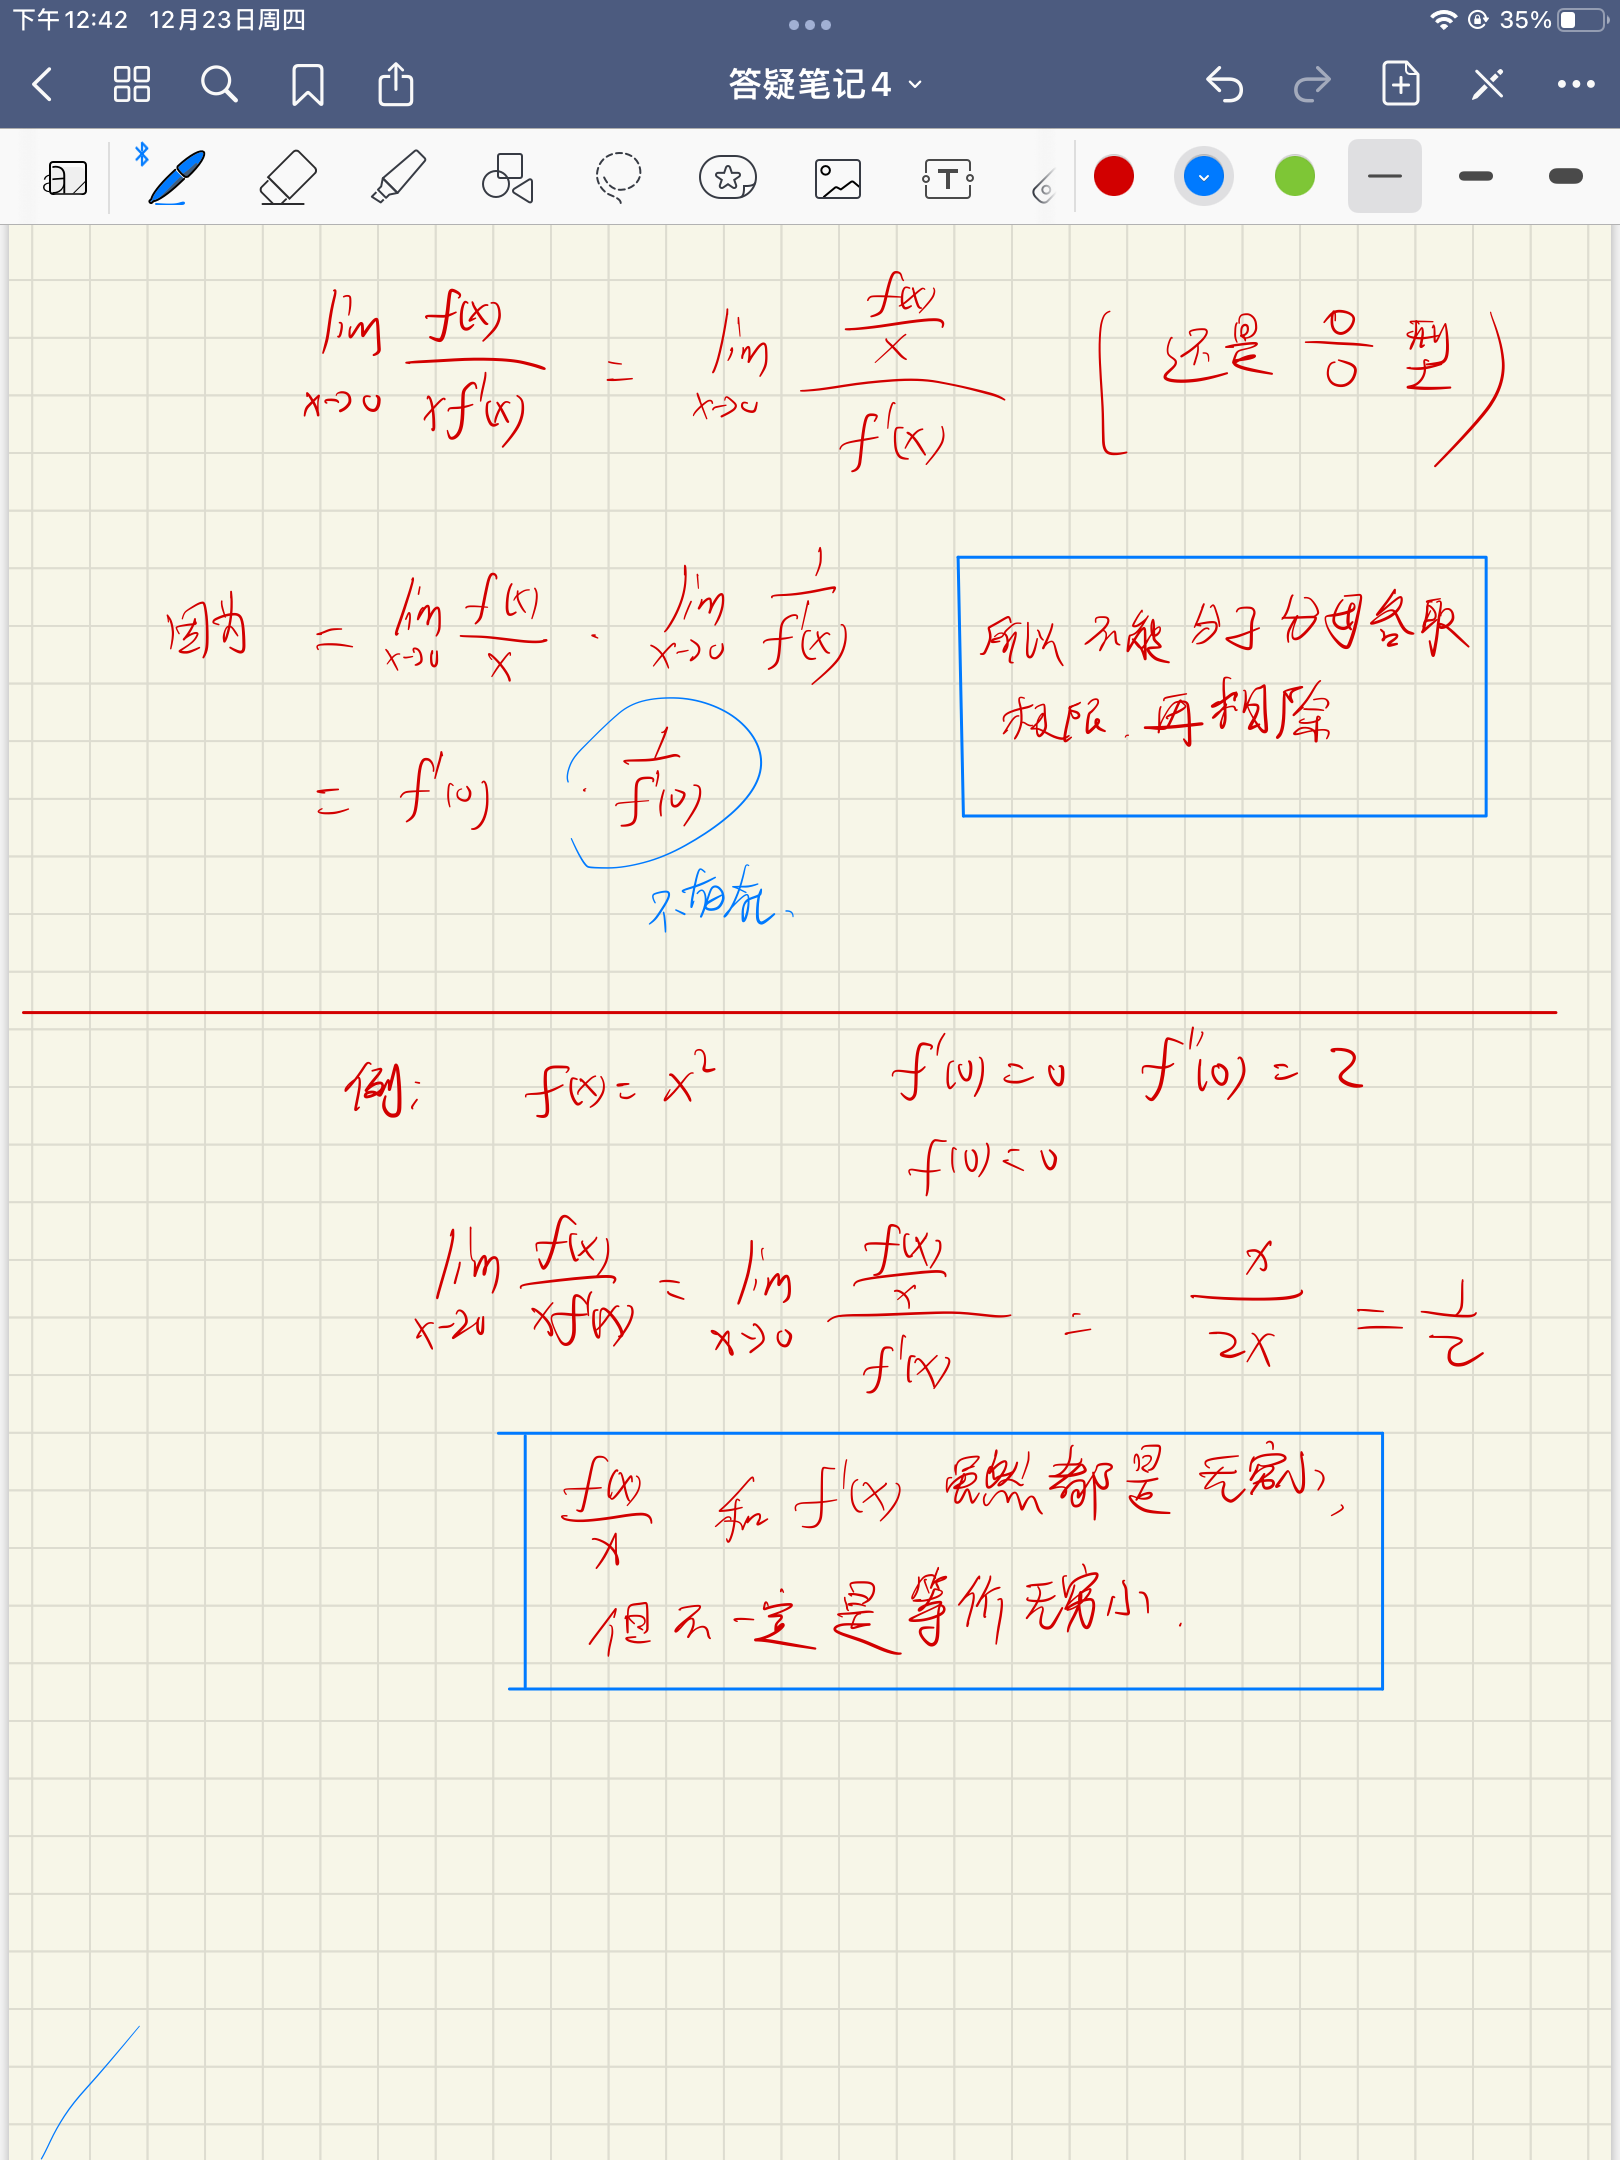 下午12:42 12月23日周四 35%
答疑笔记4
T
lim x→0 f(x)/(xf'(x)) = lim x→0 (f(x)/x)/f'(x) (还是 0/0 型)
因为 = lim x→0 f(x)/x · lim x→0 1/f'(x)
= f'(0) · 1/f'(0)
不存在、
所以不能分子分母各取
极限.再相除
例: f(x)=x² f'(0)=0 f''(0)=2
f(0)=0
lim x→0 f(x)/(xf'(x)) = lim x→0 (f(x)/x)/f'(x) = x/2x = 1/2
f(x)/x 和 f'(x) 虽然都是无穷小,
但不一定是等价无穷小.